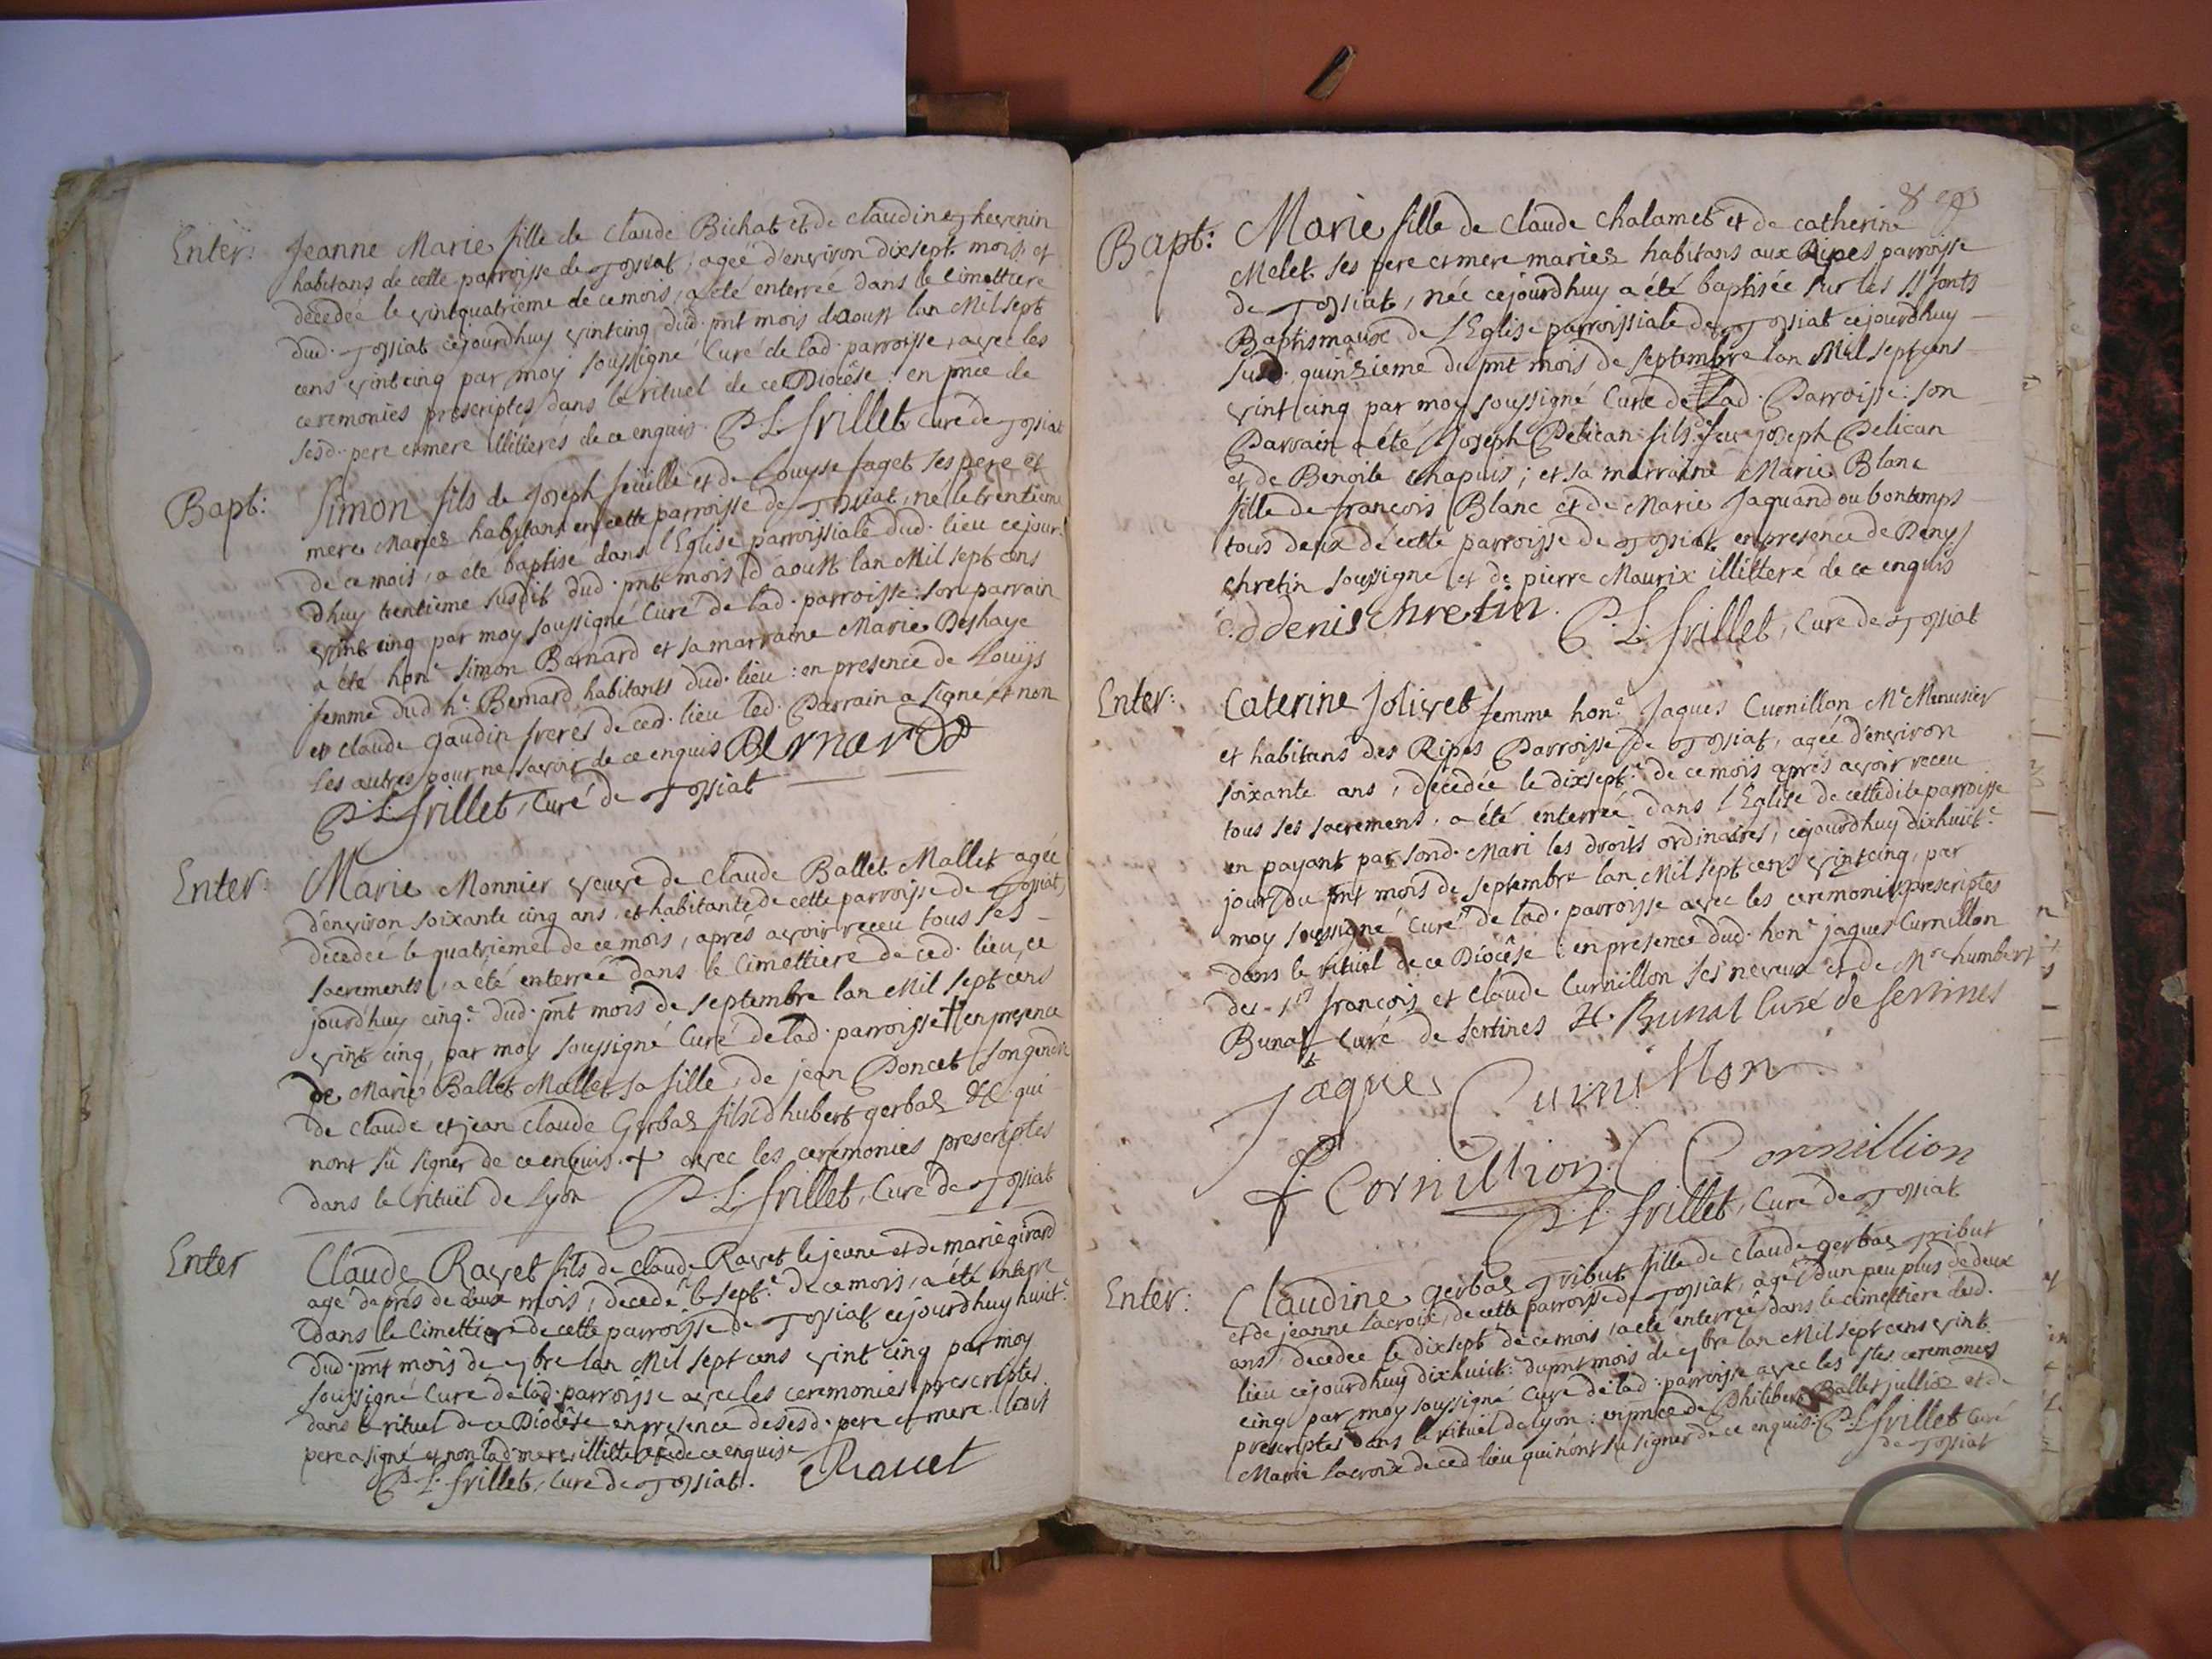 Enter: Jeanne Marie fille de Claude Bichat et de claudine thevenin
habitans de cette parroisse de Tossiat, ageé d'environ dixsept mois, et
decedeé le vintquatrieme de ce mois, a eté enterreé dans le Cimettiere
dud. Tossiat cejourdhuy vintcinq dud. pnt mois daoust lan Mil sept
cens vintcinq par moy soussigné Curé de lad. parroisse, avec les
ceremonies prescriptes dans le rituel de ce Diocêse: en pnce de
sesd. pere et mere illitterés de ce enquis. P.L. frillet, Curé de Tossiat
Bapt: Simon fils de Joseph feüille et de Louyse faget ses pere et
mere Mariez habitans en cette parroisse de Tossiat, né le trentieme
de ce mois, a eté baptisé dans l'Eglise parroissiale dud. lieu cejour
dhuy trentieme susdit dud. pnt mois d'aoust lan Mil sept cens
vint cinq par moy soussigné Curé de lad. parroisse: son parrain
a eté hone Simon Barnard et sa marraine Marie Deshaye
femme dud he. Bernard, habitants dud. lieu: en presence de Louijs
et Claude Gaudin freres de ced. lieu led. Parrain a signé et non
les autres pour ne savoir de ce enquis Bernard
P.L. frillet, Curé de Tossiat
Enter: Marie Monnier veuve de Claude Ballet Mallet ageé
d'environ soixante cinq ans, et habitante de cette parroisse de Tossiat,
decedeé le quatrieme de ce mois, aprés avoir receu tous ses
sacrements, a eté enterreé dans le Cimettiere de ced. lieu, ce
jourdhuy cinqe. dud. pnt mois de septembre lan Mil sept cens
vint cinq, par moy soussigné Curé de lad. parroisse + en presence
de Marie Ballet Mallet sa fille, de jean Poncet son gendre
de Claude et jean Claude Gerbaz fils d'hubert gerbaz &c qui
nont sû signer de ce enquis. + avec les cerémonies prescriptes
dans le rituël de Lyon P.L. frillet, Curé de Tossiat
Enter Claude Ravet fils de claude Ravet le jeune et de marie girard
agé de prés de deux mois, decedé le septe. de ce mois, a eté enterré
dans le Cimettiere de cette parroisse de Tossiat cejourdhuy huite.
dud. pnt mois de 7bre lan Mil sept cens vint cinq par moy
soussigné Curé de lad. parroisse avec les ceremonies prescriptes
dans le rituel de ce Diocêse en presence de sesd. pere et mere. ledit
pere a signé et non lad. mere illitterée de ce enquise
P.L. frillet, Curé de Tossiat. Rauet
Bapt: Marie fille de Claude Chalamet et de catherine
Melet ses pere et mere mariez habitans aux Ripes parroisse
de Tossiat, néé cejourdhuy a été baptisée sur les SS fonts
Baptismaux de l'Eglise parroissiale de Tossiat cejourdhuy
susd. quinzieme du pnt mois de septembre lan Mil sept cens
vint cinq par moy soussigné Curé de lad. Parroisse: son
Parrain a été Joseph Pelican fils d feu joseph Pelican
et de Benoite Chapuis; et sa marraine Marie Blanc
fille de francois Blanc et de Marie Jaquand ou bontemps
tous deux de cette parroisse de Tossiat, en presence de Denys
chretin soussigné et de pierre Maurix illitteré de ce enquis
denis chretin. P.L. frillet, Curé de Tossiat
Enter: Caterine Jolivet femme hone. Jaques Curnillon Me Menusier
et habitans des Ripes Parroisse de Tossiat, ageé d'environ
soixante ans, decedée le dixsepte. de ce mois aprés avoir receu
tous ses sacremens, a été enterreé dans l'Eglise de cettedite parroisse
en payant par sond. Mari les droits ordinaires, cejourdhuy dixhuite.
jour du pnt mois de septembre lan Mil sept cens vintcinq, par
moy soussigné Curé de lad. parroisse avec les ceremonies prescriptes
dans le rituël de ce Diocêse: en presence dud. hone jaques Curnillon
des Srs françois et Claude Curnillon ses neveux et de Mre humbert
Bunat Curé de sertines H. Bunat Curé de sertines
Jaques Curnillon
f. Cornillion C Cornillion
P.L. frillet, Curé de Tossiat
Enter: Claudine gerbaz Tribut fille de Claude gerbaz Tribut
et de jeanne Lacroix, de cette parroisse de Tossiat, agé d'un peu plus de deux
ans, decedée le dixsept de ce mois, a eté enterreé dans le cimettiere dud.
lieu cejourdhuy dixhuict. du pnt mois de 7bre lan Mil sept cens vint
cinq par moy soussigné Curé de lad. parroisse avec les stes ceremonies
prescriptes dans le rituël de Lyon: en pnce de Philibert Ballet jullioz et de
Marie Lacroix de ced lieu qui n'ont su signer de ce enquis: P.L. frillet Curé
de Tossiat